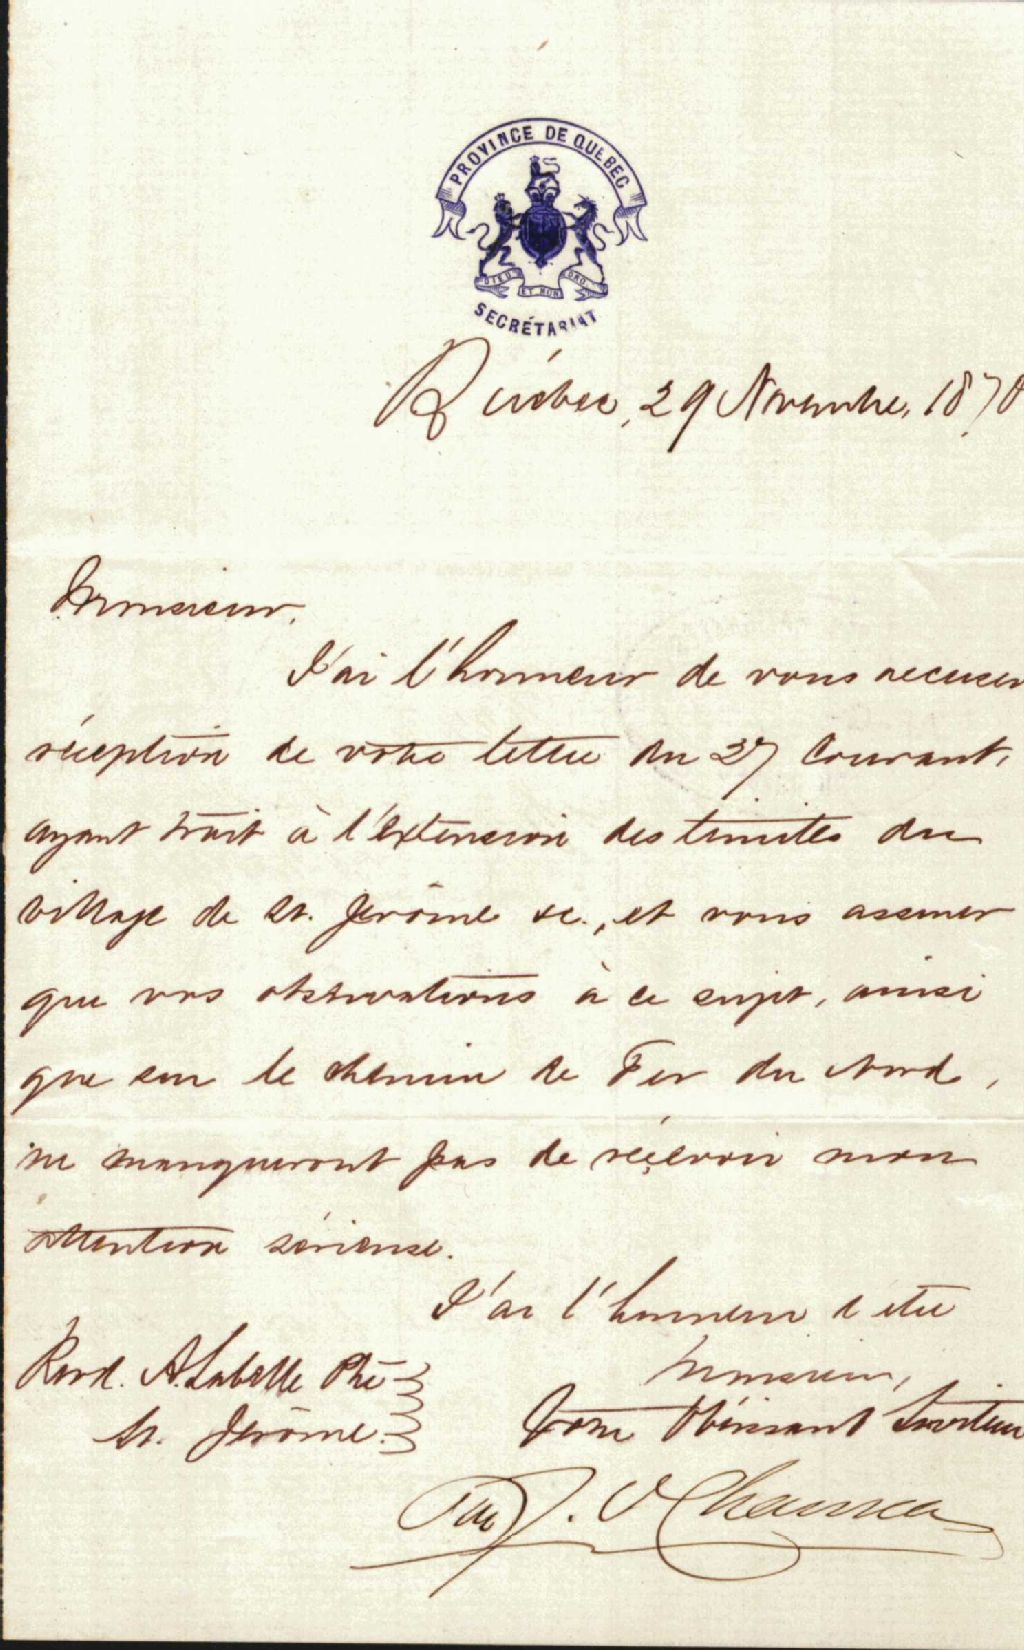 PROVINCE DE QUÉBEC
DIEU ET MON DRO
SECRÉTARIAT
Québec, 29 Novembre, 1870
Monsieur,
J'ai l'honneur de vous accuser
réception de votre lettre du 27 Courant,
ayant trait à l'extension des limites du
village de St. Jérôme &c., et vous assurer
que vos observations à ce sujet, ainsi
que sur le chemin de Fer du Nord,
ne manqueront pas de reçevoir mon
attention sérieuse.
J'ai l'honneur d'être
Monsieur,
Votre Obéissant Serviteur
Revd. A. Labelle Ptre
St. Jérôme.
J. O Chauveau